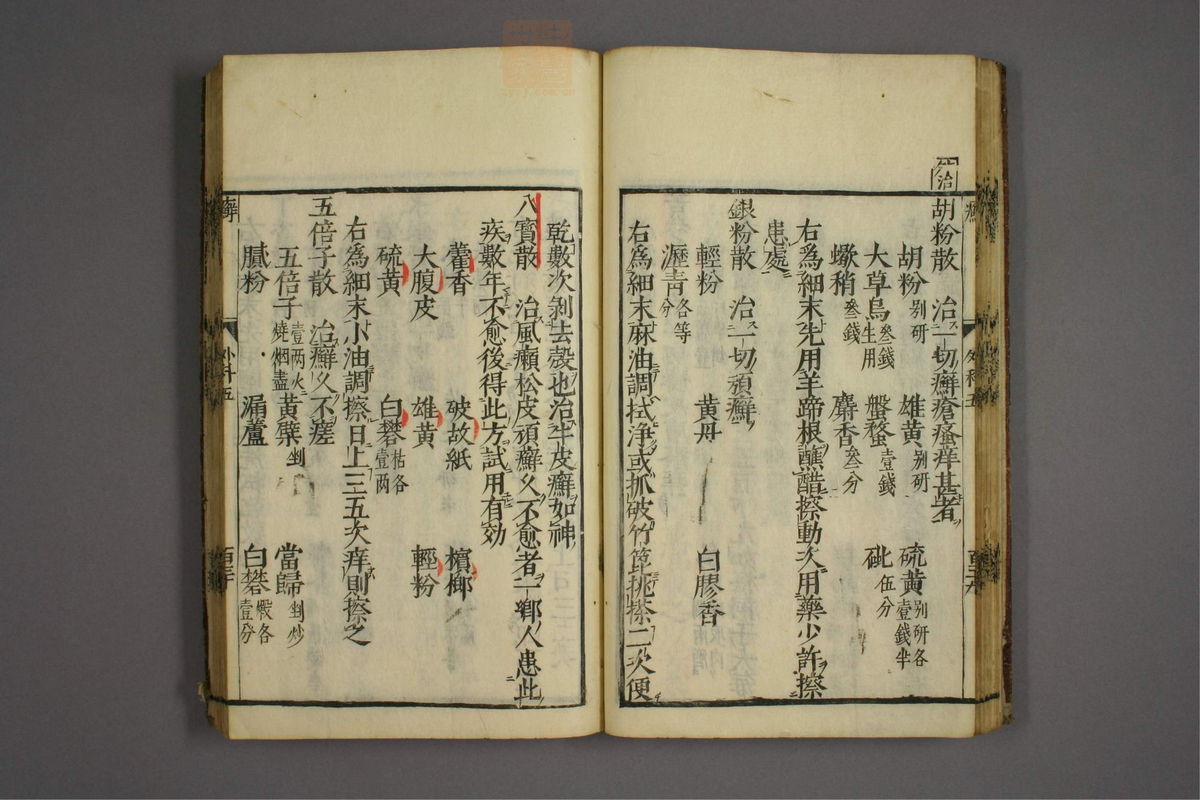 治
胡粉散　治一切癬瘡瘙痒甚者
胡粉别研　雄黄别研　硫黄别研各壹錢半
大草烏叁錢生用　盤蝥壹錢　砒伍分
蠍稍叁錢　麝香叁分
右爲細末先用羊蹄根蘸醋擦動次用藥少許擦
患處
銀粉散　治一切頑癬
輕粉　黄丹　白膠香
瀝青各等分
右爲細末麻油調拭浄或抓破竹箆挑搽二次便
乾數次剥去殼也治牛皮癬如神
八寳散　治風癩松皮頑癬久不愈者一鄉人患此
疾數年不愈後得此方試用有効
藿香　破故紙　檳榔
大腹皮　雄黄　輕粉
硫黄　白礬枯各壹两
右爲細末小油調擦日上三五次痒則擦之
五倍子散　治癬久不瘥
五倍子壹两火燒烟盡　黄蘗剉　當歸剉炒
膩粉　漏蘆　白礬煅各壹分
癬
外科五